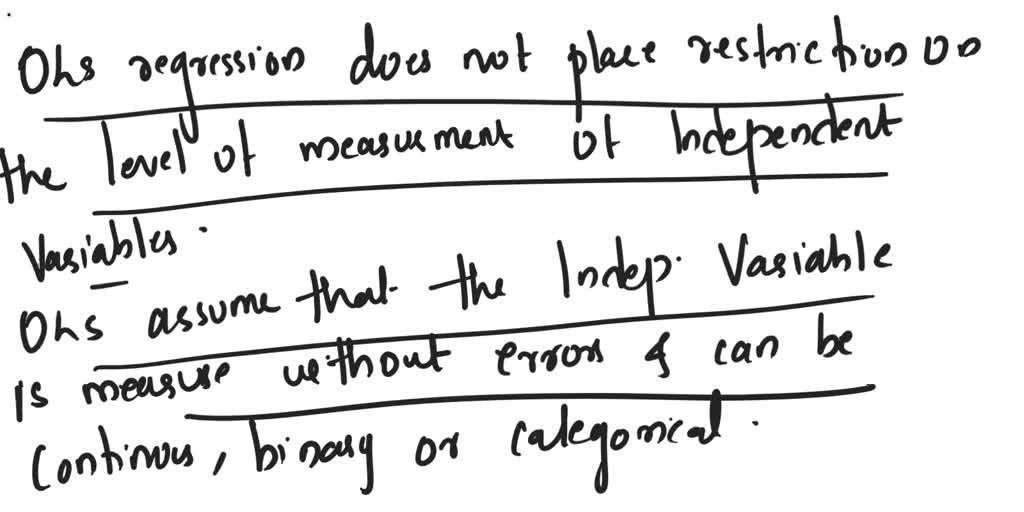 OLS regression does not place restriction on
the level of measument of Independent
Variables.
OLS assume that the Indep. Variable
is measure without errors & can be
Continous, binary or categorical.